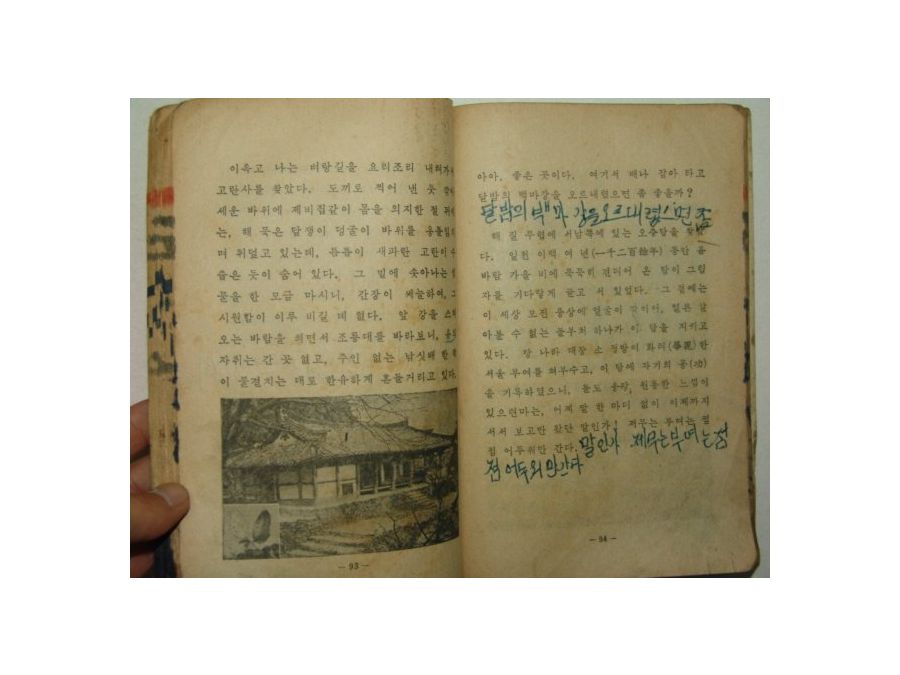 이윽고 나는 벼랑길을 요리조리 내려가
고란사를 찾았다. 도끼로 찍어 낸 듯
세운 바위에 제비집같이 몸을 의지한 절
는, 해 묵은 담쟁이 덩굴이 바위를
며 뒤덮고 있는데, 틈틈이 새파란 고란이 수
줍은 듯이 숨어 있다. 그 밑에 솟아나는
물을 한 모금 마시니, 간장이 써늘하여,
시원함이 이루 비길 데 없다. 앞 강을
오는 바람을 쐬면서 조룡대를 바라보니,
자취는 간 곳 없고, 주인 없는 낚싯배 한
이 물결치는 대로 한유하게 흔들거리고 있다.
— 93 —
아아, 좋은 곳이다. 여기서 배나 잡아 타고
달밤의 백마강을 오르내렸으면 좀 좋을까?
달밤의 백마 강을오르내렸으면 좀
해 질 무렵에 서남쪽에 있는 오층탑을
다. 일천 이백 여 년(一千二百餘年) 동안 봄
바람 가을 비에 묵묵히 견디어 온 탑이 그림
자를 기다랗게 끌고 서 있었다. 그 곁에는
이 세상 모진 풍상에 얼굴이 알은 살
아볼 수 없는 돌부처 하나가 이 탑을 지키고
있다. 당 나라 대장 소 정방이 화려(華麗)한
서울 부여를 쳐부수고, 이 탑에 자기의 공(功)
을 기록하였으니, 돌도 응당, 원통한 느낌이
있으련마는, 어찌 말 한 마디 없이 이제까지
서서 보고만 있단 말인가! 저무는 부여는 점
점 어두워만 간다. 말인가 제무는부여는점
점 어두워만간다
— 94 —